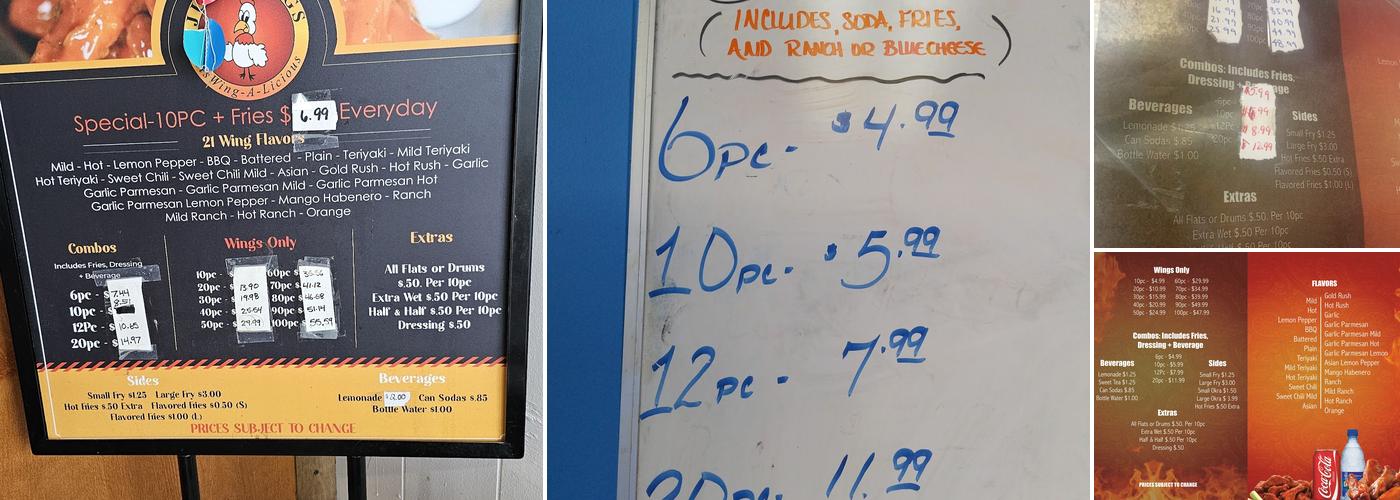 Special-10PC + Fries $ 6.99 Everyday
21 Wing Flavors
Mild - Hot - Lemon Pepper - BBQ - Battered - Plain - Teriyaki - Mild Teriyaki
Hot Teriyaki - Sweet Chili - Sweet Chili Mild - Asian - Gold Rush - Hot Rush - Garlic
Garlic Parmesan - Garlic Parmesan Mild - Garlic Parmesan Hot
Garlic Parmesan Lemon Pepper - Mango Habenero - Ranch
Mild Ranch - Hot Ranch - Orange
Combos
Includes Fries, Dressing
+ Beverage
6pc - $ 7.44
10pc - 8.51
12Pc - 10.65
20pc - $ 14.97
Wings Only
10pc - $ 60pc - $
20pc - $ 13.90 70pc 41.12
30pc - 19.98 80pc 46.68
40pc 90pc 51.14
50pc - 29.99 100pc 55.59
Extras
All Flats or Drums
$.50. Per 10pc
Extra Wet $.50 Per 10pc
Half & Half $.50 Per 10pc
Dressing $.50
Sides
Small Fry $1.25 Large Fry $3.00
Hot Fries $.50 Extra Flavored Fries $0.50 (S)
Flavored Fries $1.00 (L)
Beverages
Lemonade $2.00 Can Sodas $.85
Bottle Water $1.00
PRICES SUBJECT TO CHANGE
(INCLUDES, SODA, FRIES,
AND RANCH OR BLUECHEESE)
6pc - $4.99
10pc - $5.99
12pc - 7.99
20pc - 11.99
16.99 35.99
21.99 40.99
25.99 44.99
100pc 48.99
Combos: Includes Fries,
Dressing +
Beverages
Lemonade $1.25
Can Sodas $.85
Bottle Water $1.00
6pc - $5.99
10pc
12Pc $8.99
20pc $12.99
Sides
Small Fry $1.25
Large Fry $3.00
Hot Fries $.50 Extra
Flavored Fries $0.50 (S)
Flavored Fries $1.00 (L)
Extras
All Flats or Drums $.50. Per 10pc
Extra Wet $.50 Per 10pc
Half & Half $.50 Per 10pc
Wings Only
10pc - $4.99 60pc - $29.99
20pc - $10.99 70pc - $34.99
30pc - $15.99 80pc - $39.99
40pc - $20.99 90pc - $44.99
50pc - $24.99 100pc - $47.99
Combos: Includes Fries,
Dressing + Beverage
6pc - $4.99
10pc - $5.99
12Pc - $7.99
20pc - $11.99
Beverages
Lemonade $1.25
Sweet Tea $1.25
Can Sodas $.85
Bottle Water $1.00
Sides
Small Fry $1.25
Large Fry $3.00
Small Okra $1.50
Large Okra $ 3.99
Hot Fries $.50 Extra
Extras
All Flats or Drums $.50. Per 10pc
Extra Wet $.50 Per 10pc
Half & Half $.50 Per 10pc
Dressing $.50
PRICES SUBJECT TO CHANGE
FLAVORS
Mild
Hot
Lemon Pepper
BBQ
Battered
Plain
Teriyaki
Mild Teriyaki
Hot Teriyaki
Sweet Chili
Sweet Chili Mild
Asian
Gold Rush
Hot Rush
Garlic
Garlic Parmesan
Garlic Parmesan Mild
Garlic Parmesan Hot
Garlic Parmesan Lemon
Asian Lemon Pepper
Mango Habanero
Ranch
Mild Ranch
Hot Ranch
Orange
Coca-Cola